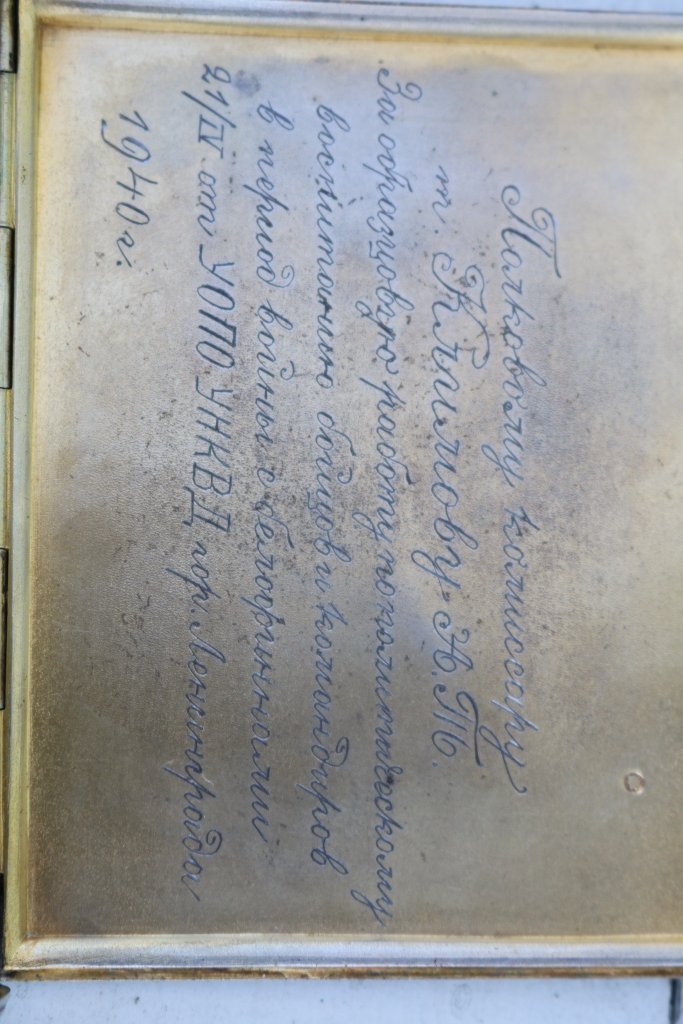 Полковому комиссару
т. Климову Н. Т.
За образцовую работу по политическому
воспитанию бойцов и командиров
в период войны с белофиннами
21/IV от УОПО УНКВД гор. Ленинграда
1940 г.